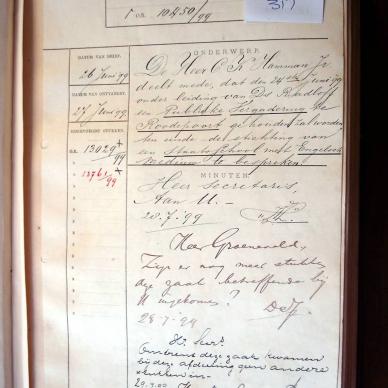 R on. 10450/99
317
DATUM VAN BRIEF.
26 Juni '99
DATUM VAN ONTVANGST.
27 Juni '99
GEREGISTREERDE STUKKEN.
R.R. 13029/99
13761/99
ONDERWERP.
De Heer C Hamman Jr
deelt mede, dat den 24 sten Juni '99
onder leiding van Ds Radloff
een Publieke Vergadering te
Roodepoort gehouden zal worden
ten einde de stichting van
een Staatsschool met Engelsch
medium te bespreken
MINUTEN.
Heer Secretaris,
Aan U.-
28.7.'99
Heer Groeneveld,
Zijn er nog meer stukken
deze zaak betreffende bij
U ingekomen?
28-7-99
Hr. Secr.
Omtrent deze zaak kwamen
bij deze afdeeling geen andere
stukken in.